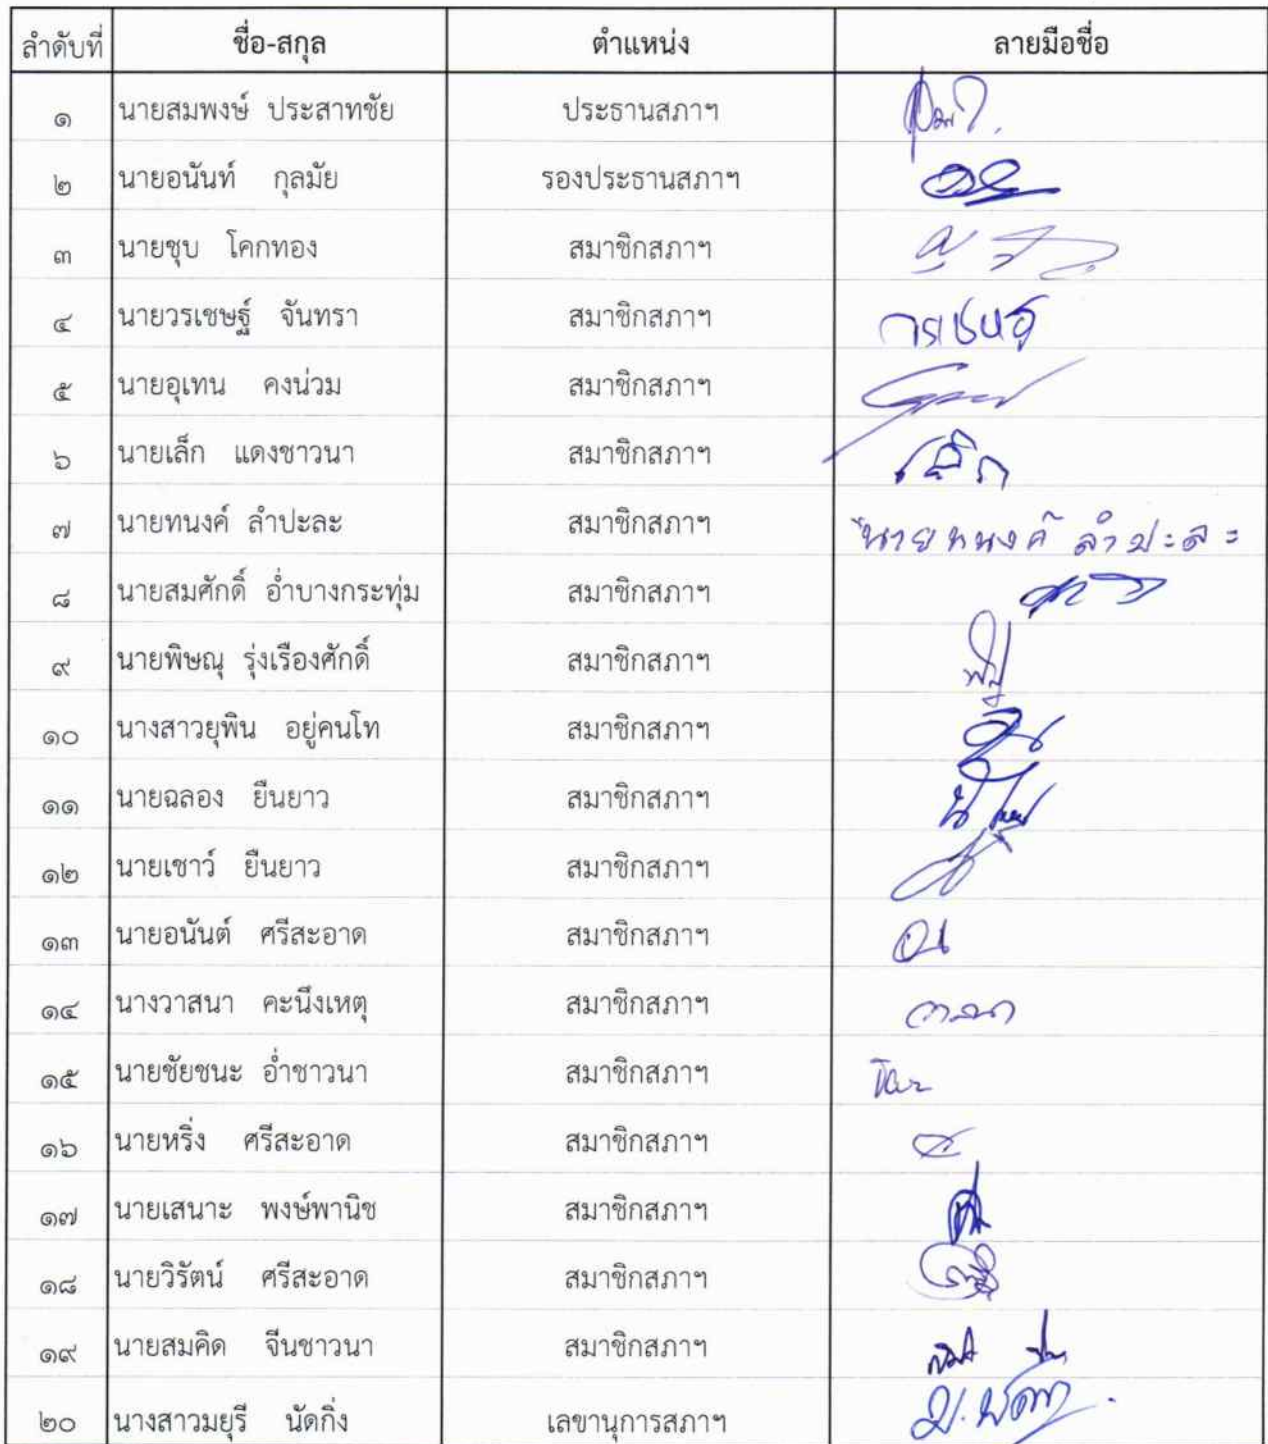 ลำดับที่ ชื่อ-สกุล ตำแหน่ง ลายมือชื่อ
๑ นายสมพงษ์ ประสาทชัย ประธานสภาฯ
๒ นายอนันท์ กุลมัย รองประธานสภาฯ
๓ นายชุบ โคกทอง สมาชิกสภาฯ
๔ นายวรเชษฐ์ จันทรา สมาชิกสภาฯ วรเชษฐ์
๕ นายอุเทน คงน่วม สมาชิกสภาฯ
๖ นายเล็ก แดงชาวนา สมาชิกสภาฯ
๗ นายทนงค์ ลำปะละ สมาชิกสภาฯ นายทนงค์ ลำปะละ
๘ นายสมศักดิ์ อ่ำบางกระทุ่ม สมาชิกสภาฯ
๙ นายพิษณุ รุ่งเรืองศักดิ์ สมาชิกสภาฯ
๑๐ นางสาวยุพิน อยู่คนโท สมาชิกสภาฯ
๑๑ นายฉลอง ยืนยาว สมาชิกสภาฯ
๑๒ นายเชาว์ ยืนยาว สมาชิกสภาฯ
๑๓ นายอนันต์ ศรีสะอาด สมาชิกสภาฯ
๑๔ นางวาสนา คะนึงเหตุ สมาชิกสภาฯ วาสนา
๑๕ นายชัยชนะ อ่ำชาวนา สมาชิกสภาฯ
๑๖ นายหริ่ง ศรีสะอาด สมาชิกสภาฯ
๑๗ นายเสนาะ พงษ์พานิช สมาชิกสภาฯ
๑๘ นายวิรัตน์ ศรีสะอาด สมาชิกสภาฯ
๑๙ นายสมคิด จีนชาวนา สมาชิกสภาฯ
๒๐ นางสาวมยุรี นัดกิ่ง เลขานุการสภาฯ